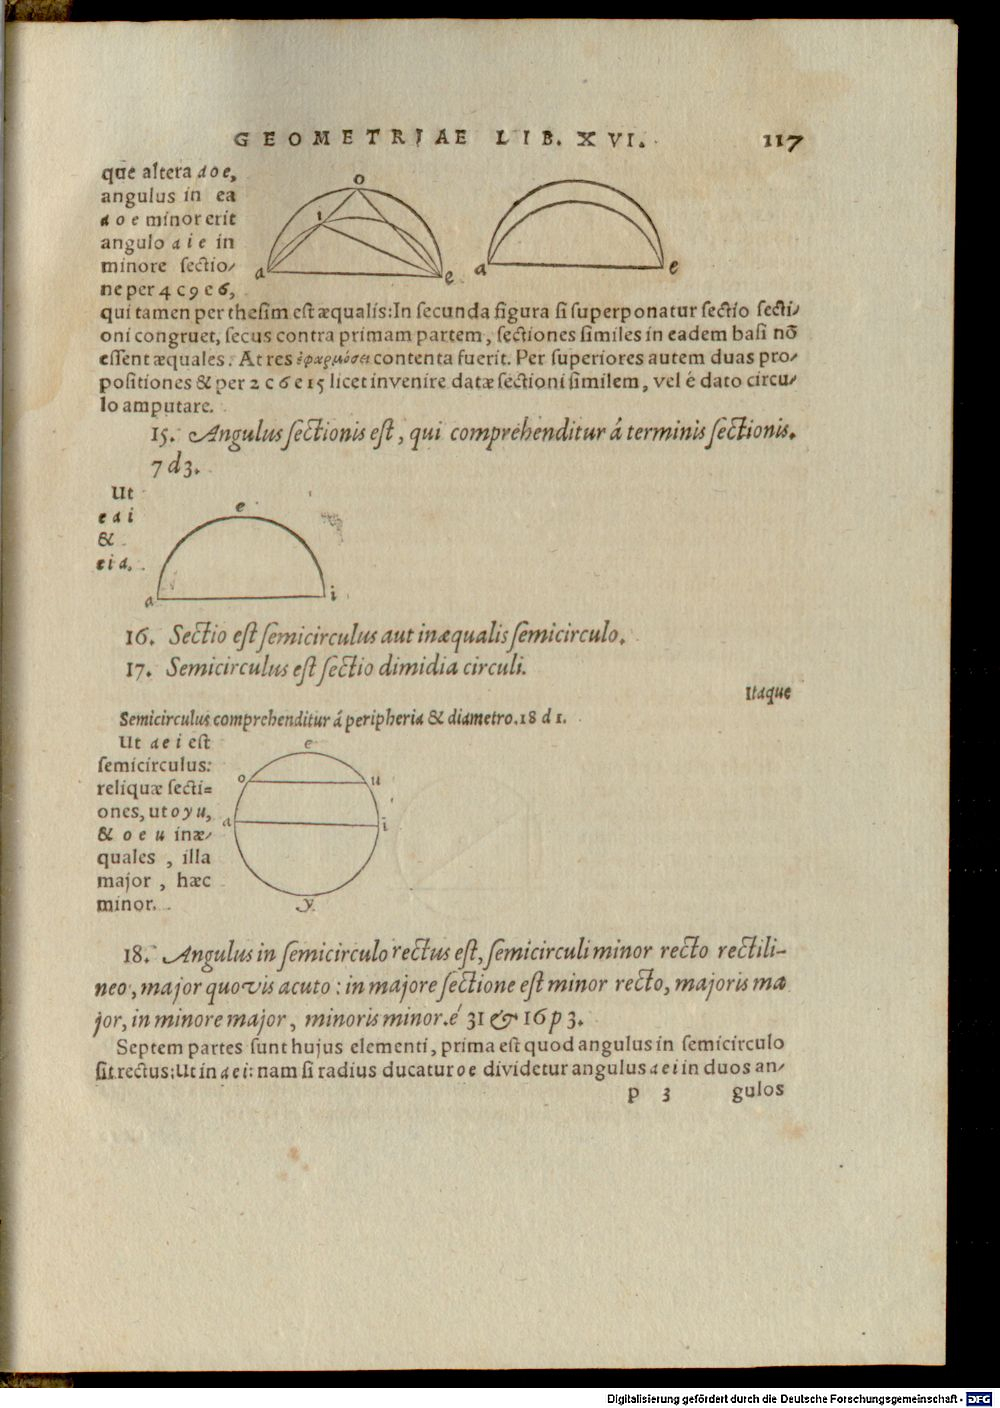 GEOMETRIAE LIB. XVI. 117
que altera a o e,
angulus in ea
a o e minor erit
angulo a i e in
minore sectio⸗
ne per 4 c 9 e 6,
o
i
a
e
a
e
qui tamen per thesim est æqualis: In secunda figura si superponatur sectio secti⸗
oni congruet, secus contra primam partem, sectiones similes in eadem basi nō
essent æquales. At res ἐφαρμόσει contenta fuerit. Per superiores autem duas pro⸗
positiones & per 2 c 6 e 15 licet invenire datæ sectioni similem, vel é dato circu⸗
lo amputare.
15. Angulus sectionis est, qui comprehenditur á terminis sectionis.
7 d 3.
Ut
e a i
&
e i a.
e
a
i
16. Sectio est semicirculus aut inæqualis semicirculo.
17. Semicirculus est sectio dimidia circuli.
Itaque
Semicirculus comprehenditur á peripheria & diametro. 18 d 1.
Ut a e i est
semicirculus:
reliquæ secti=
ones, ut o y u,
& o e u inæ⸗
quales, illa
major, hæc
minor.
e
o
u
a
i
y
18. Angulus in semicirculo rectus est, semicirculi minor recto rectili-
neo, major quovis acuto: in majore sectione est minor recto, majoris ma
jor, in minore major, minoris minor. é 31 & 16 p 3.
Septem partes sunt hujus elementi, prima est quod angulus in semicirculo
sit rectus: Ut in a e i: nam si radius ducatur o e dividetur angulus a e i in duos an⸗
p 3 gulos
Digitalisierung gefördert durch die Deutsche Forschungsgemeinschaft - DFG